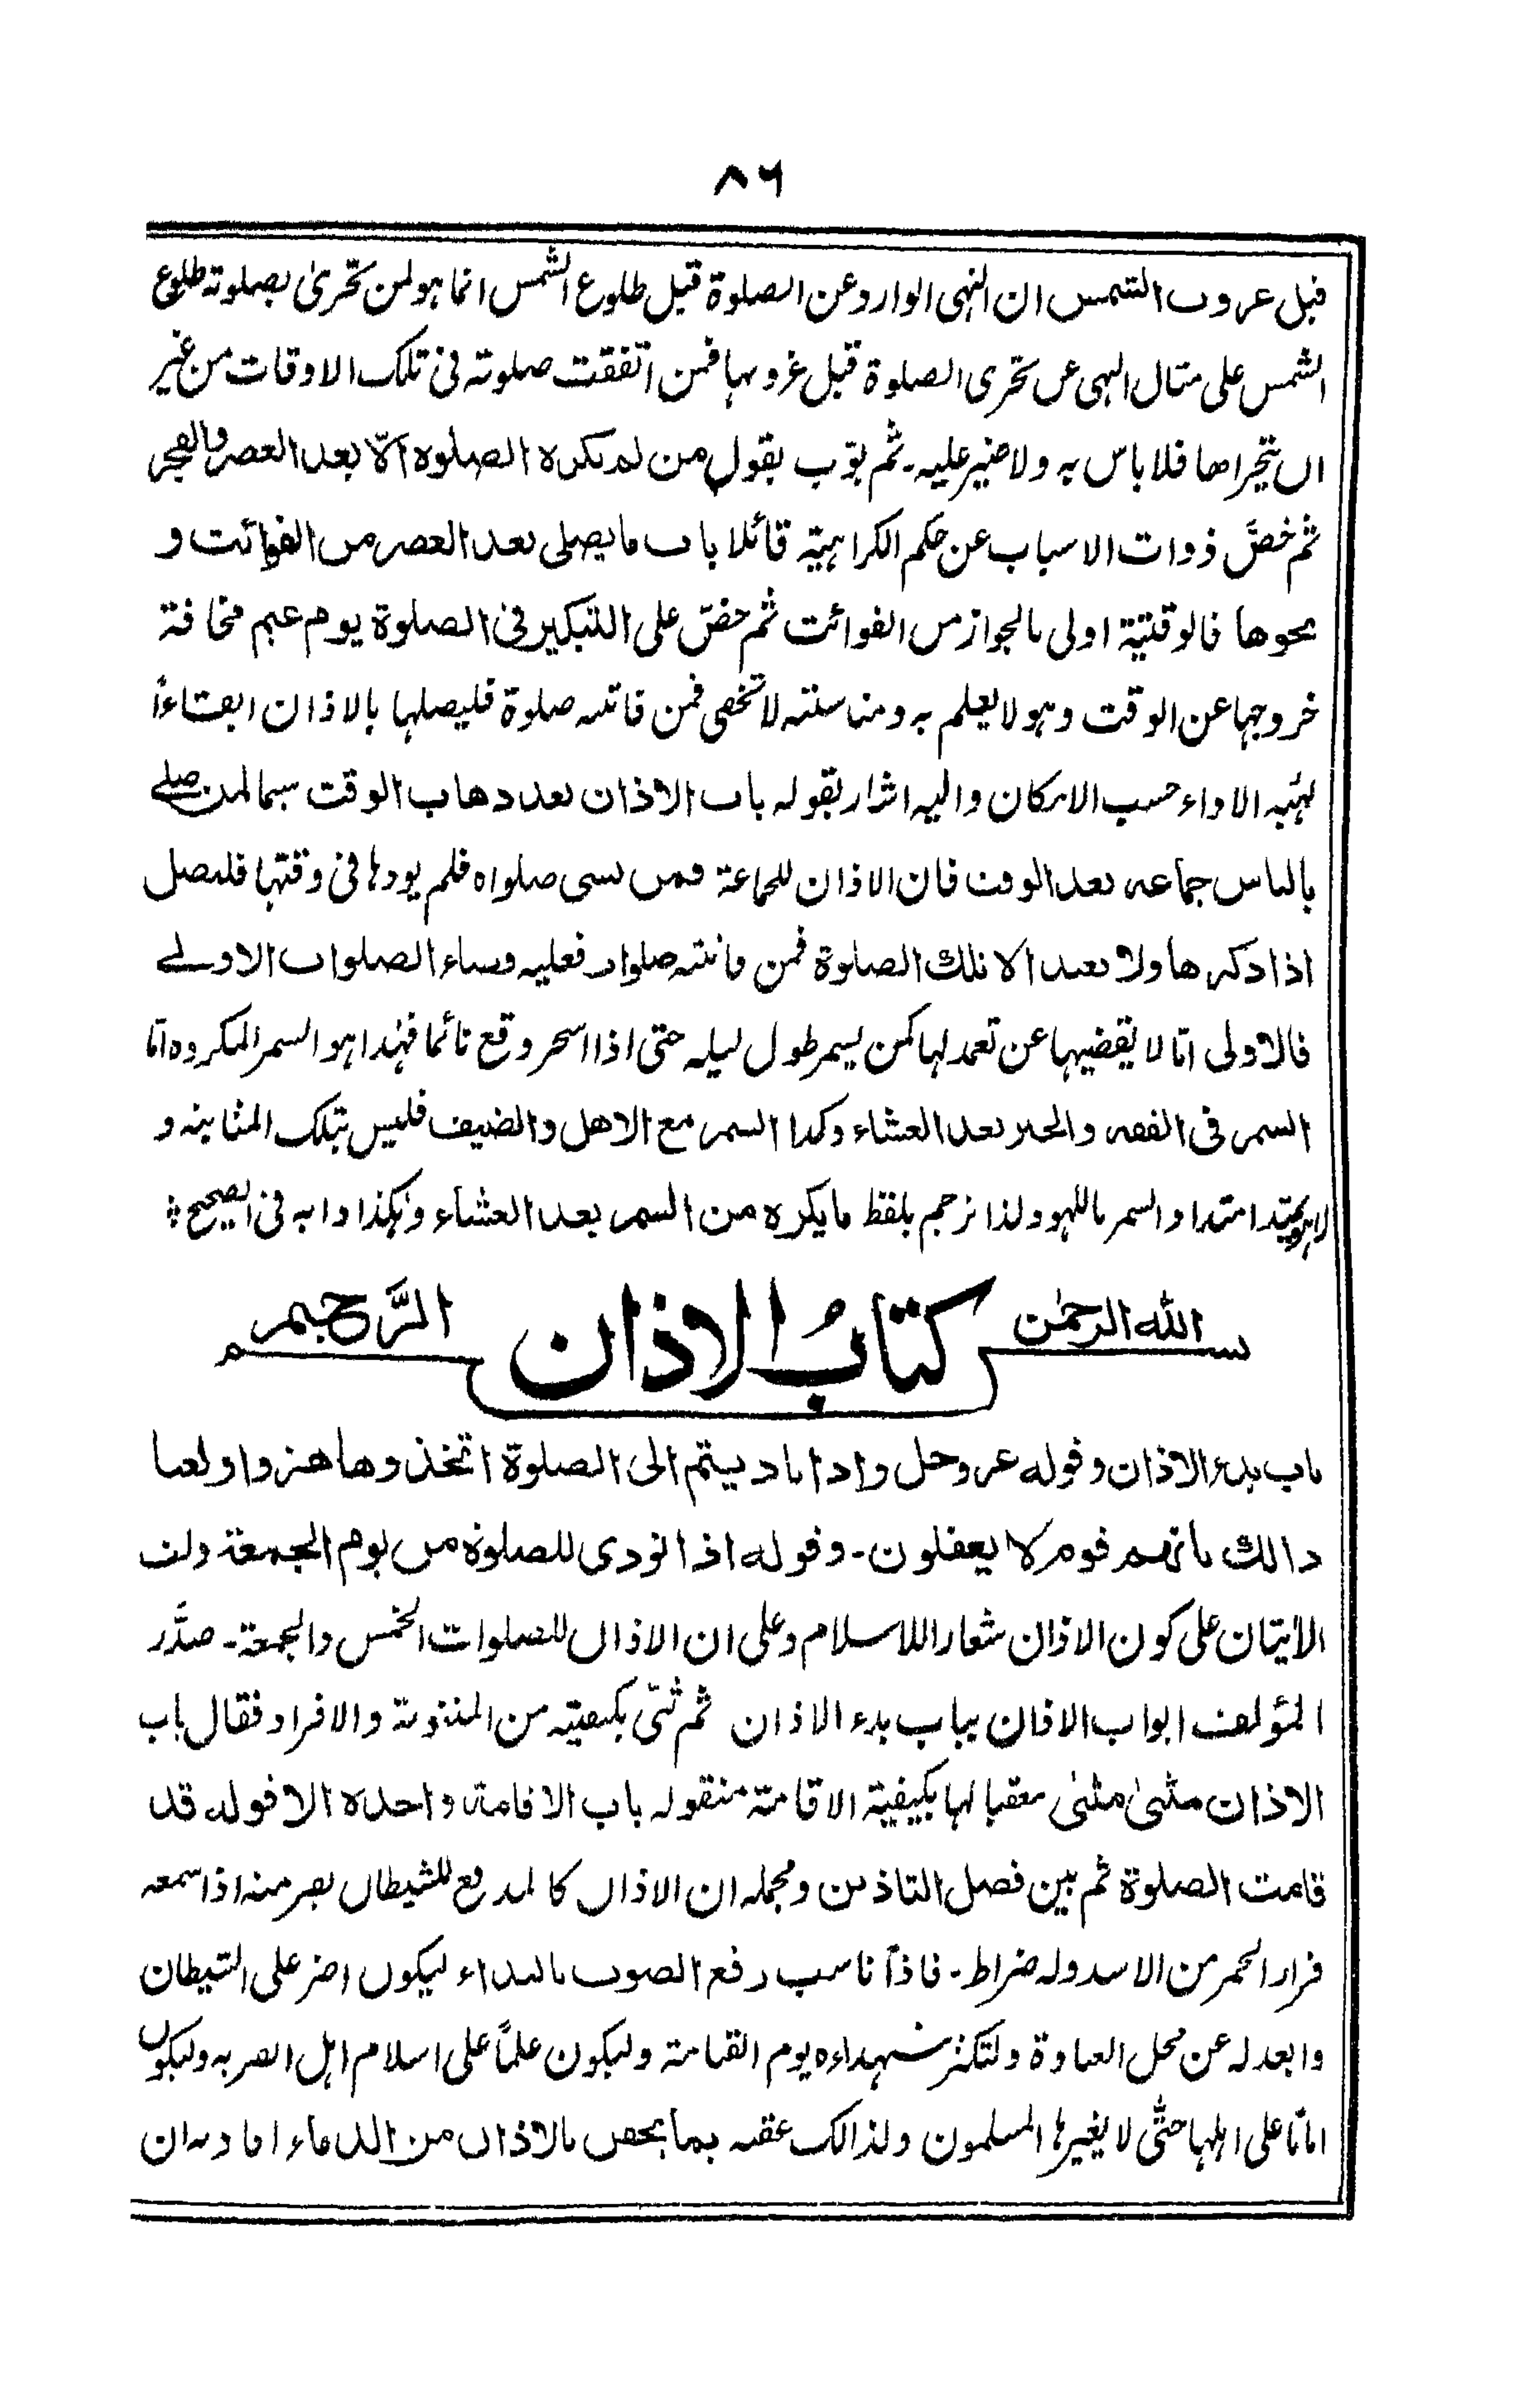 ٨٦
قبل غروب الشمس ان النہی الوارد عن الصلوة قبل طلوع الشمس انما ہو لمن تحریٰ بصلوتہ طلوع
الشمس علی مثال النہی عن تحری الصلوة قبل غروبہا فمن اتفقت صلوتہ فی تلک الاوقات من غیر
ان یتحراها فلا باس بہ ولا ضیر علیہ۔ ثم بوّب بقول من لم یکره الصلوه الّا بعد العصر والفجر
ثم خصّ ذوات الاسباب عن حکم الکراہیۃ قائلا باب ما یصلی بعد العصر من الفوائت و
نحوها فالوقتیۃ اولی بالجواز من الفوائت ثم حضّ علی التبکیر فی الصلوة یوم غیم مخافۃ
خروجہا عن الوقت وہو لا یعلم بہ ومناسبتہ لا تخفی فمن فاتتہ صلوة فلیصلہا بالاذان ابقاءً
لہیئۃ الاداء حسب الامکان والیہ اشار بقولہ باب الاذان بعد ذهاب الوقت سیما لمن صلے
بالناس جماعۃ بعد الوقت فان الاذان للجماعۃ فمن نسی صلواه فلم یودہا فی وقتہا فلیصل
اذا ذکرها ولا یعید الا تلک الصلوة فمن فاتتہ صلوات فعلیہ قضاء الصلوات الاولے
فالاولی امّا لا یقضیہا عن تعمد لہا کمن یسمر طول لیلہ حتی اذا اسحر وقع نائما فہذا ہو السمر المکروہ امّا
السمر فی الفقہ والخیر بعد العشاء وکذا السمر مع الاهل والضیف فلیس بتلک المثابۃ و
لا یمتد امتداد السمر باللہو ولذا ترجم بلفظ ما یکره من السمر بعد العشاء وہکذا دابہ فی الصحیح ؞
بسم الله الرحمٰن الرَّحیم
کتابُ الاذان
باب بدء الاذان وقوله عز وجل واذا نادیتم الی الصلوة اتخذوها هزوا ولعبا
ذالك بانهم قوم لا یعقلون۔ وقوله اذا نودی للصلوة من یوم الجمعة دلت
الآیتان علی کون الاذان شعار اللاسلام وعلی ان الاذان للصلوات الخمس والجمعۃ۔ صدَّر
المؤلف ابواب الاذان بباب بدء الاذان ثم ثنّی بکیفیتہ من المثنویۃ والافراد فقال باب
الاذان مثنیٰ مثنیٰ معقبا لہا بکیفیۃ الاقامۃ بقولہ باب الاقامة واحده الا قوله قد
قامت الصلوة ثم بین فصل التاذین ومجملہ ان الاذان کالمدفع للشیطان یفر منہ اذا سمعہ
فرار الحمر من الاسد ولہ ضراط۔ فاذاً ناسب رفع الصوت بالنداء لیکون اضر علی الشیطان
وابعد لہ عن محل العبادة ولتکثر شہداءه یوم القیامۃ ولیکون علماً علی اسلام اہل القریہ ولیکون
اماناً علی اہلہا حتّی لا یغیرہا المسلمون ولذالک عقبہ بما یحقن بالاذان من الدماء افاد بہ ان